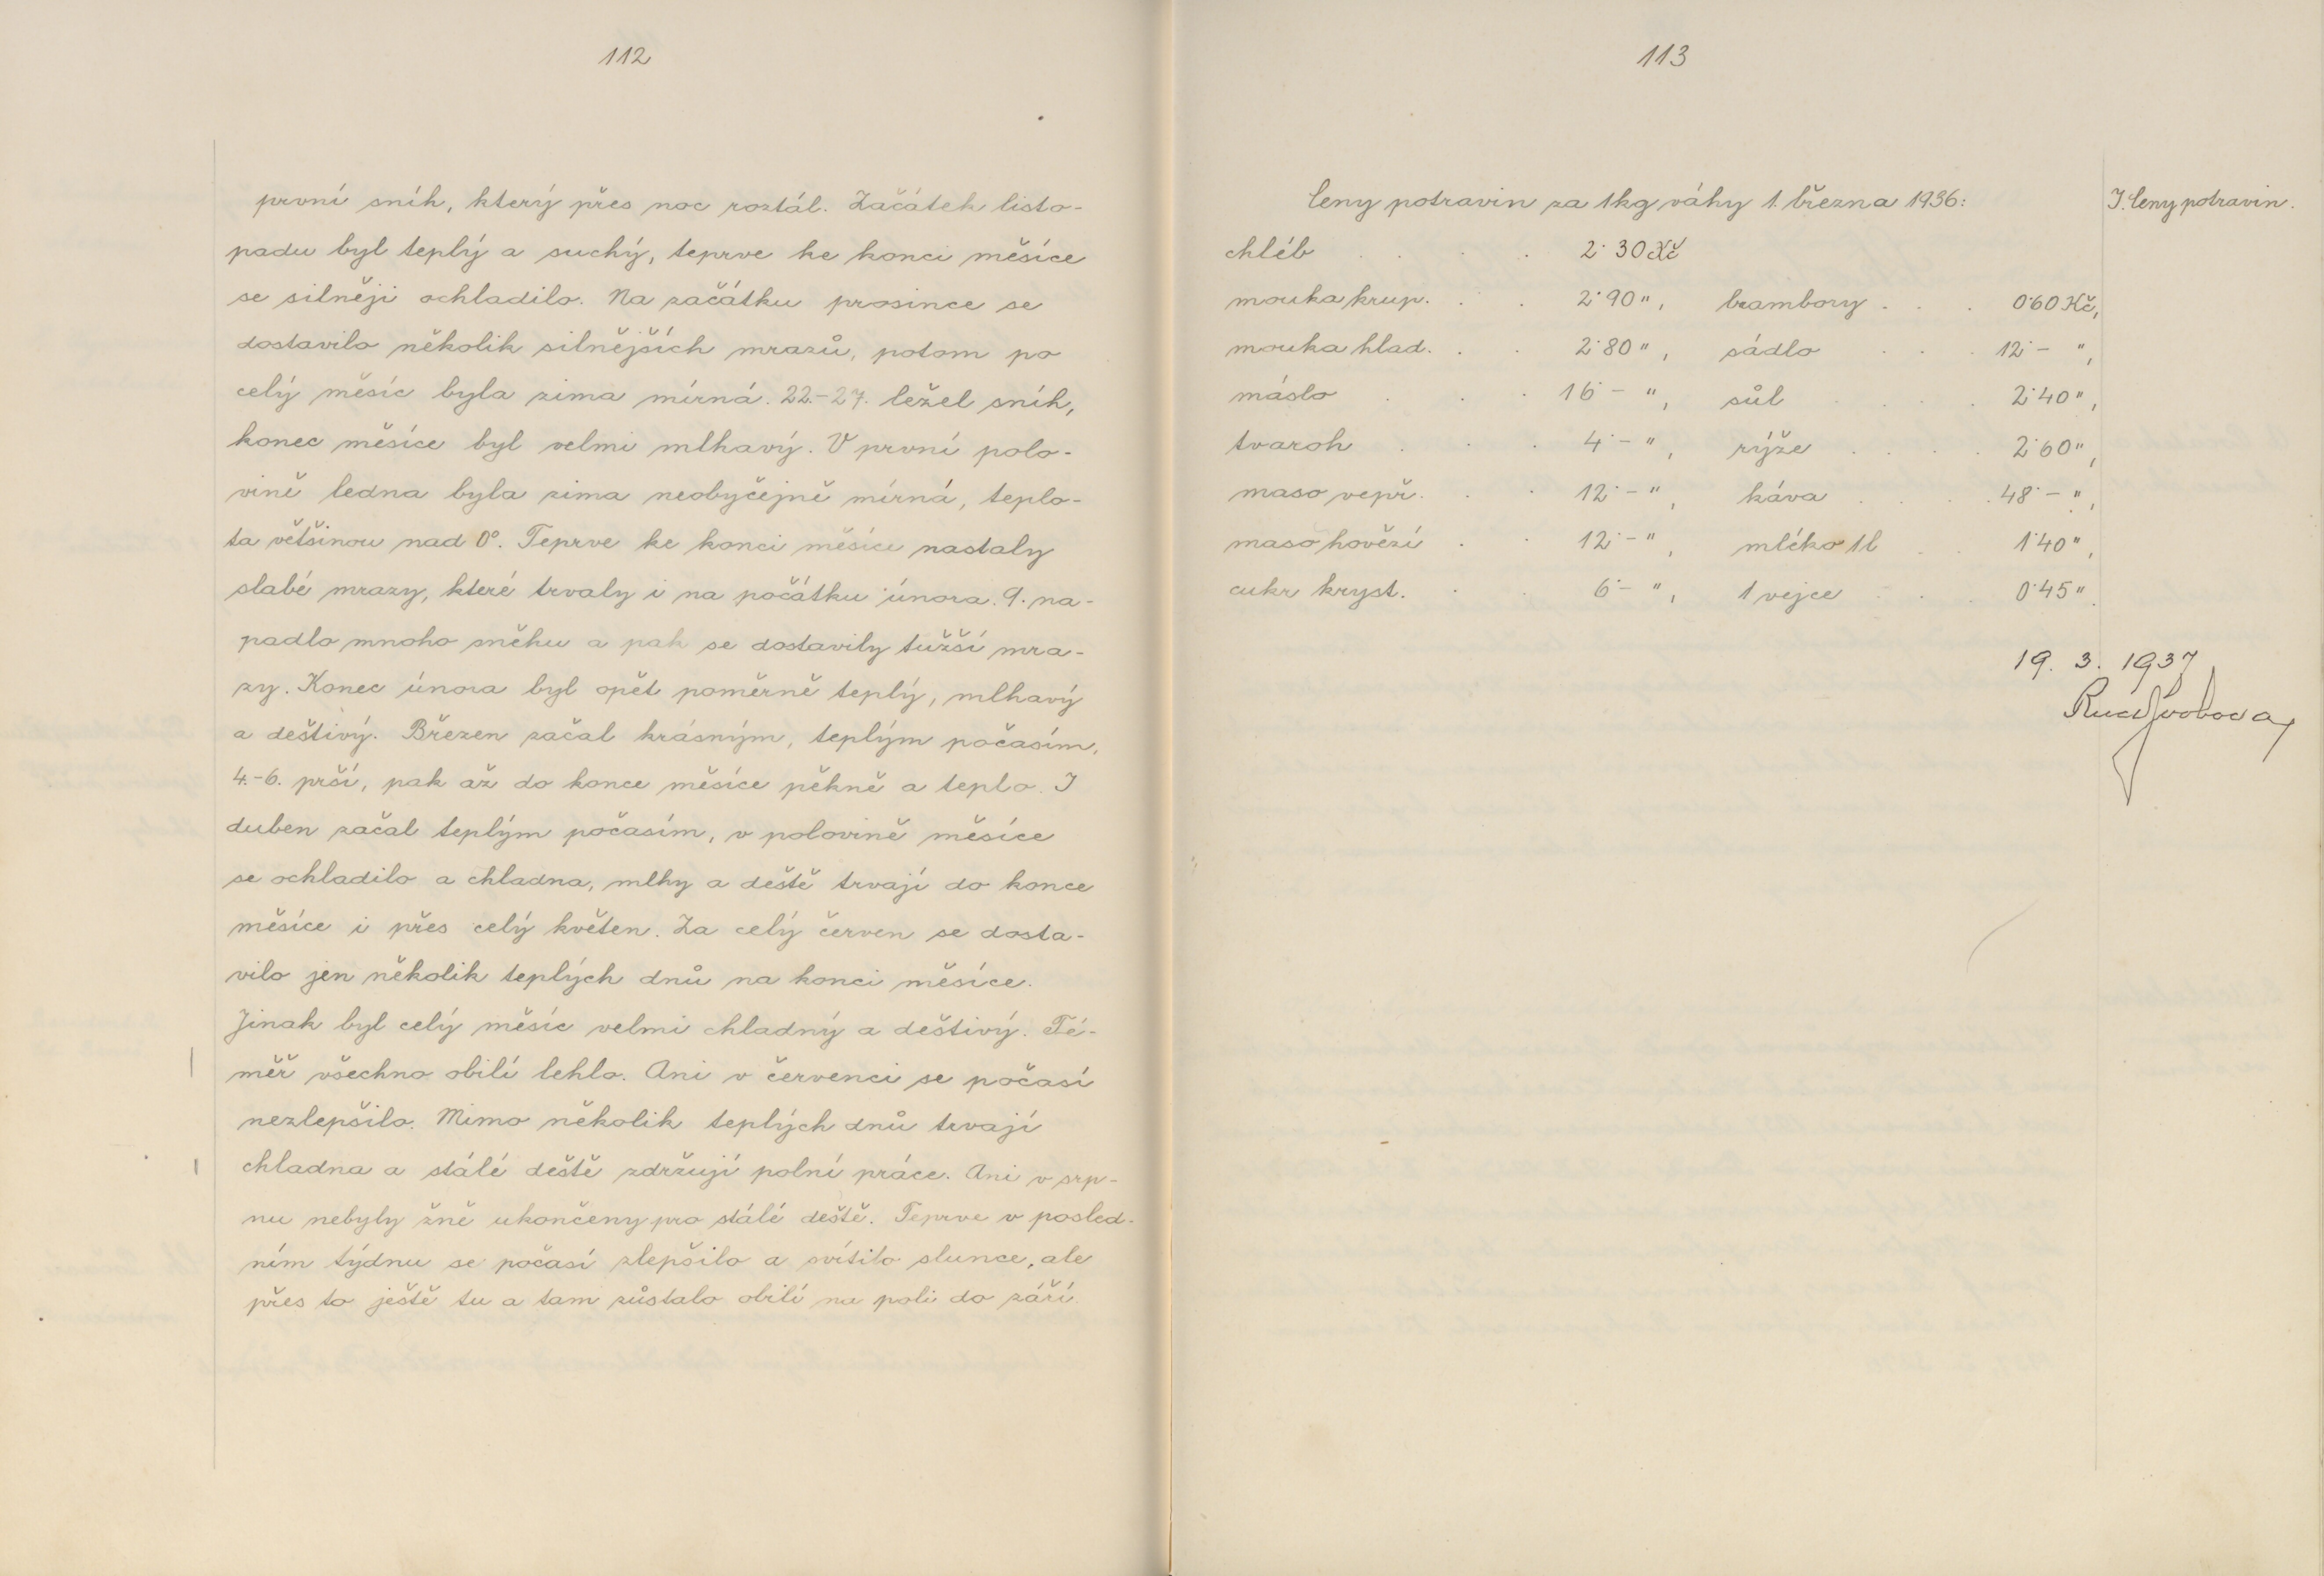 112
první sníh, který přes noc roztál. Začátek listo-
padu byl teplý a suchý, teprve ke konci měsíce
se silněji ochladilo. Na začátku prosince se
dostavilo několik silnějších mrazů, potom po
celý měsíc byla zima mírná. 22.-27. ležel sníh,
konec měsíce byl velmi mlhavý. V první polo-
vině ledna byla zima neobyčejně mírná, teplo-
ta většinou nad 0°. Teprve ke konci měsíce nastaly
slabé mrazy, které trvaly i na počátku února. 9. na-
padlo mnoho sněhu a pak se dostavily tužší mra-
zy. Konec února byl opět poměrně teplý, mlhavý
a deštivý. Březen začal krásným, teplým počasím,
4.-6. prší, pak až do konce měsíce pěkně a teplo. I
duben začal teplým počasím, v polovině měsíce
se ochladilo a chladna, mlhy a deště trvají do konce
měsíce i přes celý květen. Za celý červen se dosta-
vilo jen několik teplých dnů na konci měsíce.
Jinak byl celý měsíc velmi chladný a deštivý. Té-
měř všechno obilí lehlo. Ani v červenci se počasí
nezlepšilo. Mimo několik teplých dnů trvají
chladna a stálé deště zdržují polní práce. Ani v srp-
nu nebyly žně ukončeny pro stálé deště. Teprve v posled-
ním týdnu se počasí zlepšilo a svítilo slunce, ale
přes to ještě tu a tam zůstalo obilí na poli do září.
113
Ceny potravin za 1kg váhy 1. března 1936:
I. Ceny potravin.
chléb . . . . 2·30 Kč
mouka krup. . . 2·90 ", brambory . . . 0·60 Kč,
mouka hlad. . . 2·80 ", sádlo . . . 12·- ",
máslo . . . 16·- ", sůl . . . . 2·40 ",
tvaroh . . . 4·- ", rýže . . . . 2·60 ",
maso vepř. . . 12·- ", káva . . . . 48·- ",
maso hovězí . . 12·- ", mléko 1l . . 1·40 ",
cukr kryst. . . 6·- ", 1 vejce . . . 0·45 ".
19. 3. 1937
Rud Svoboda